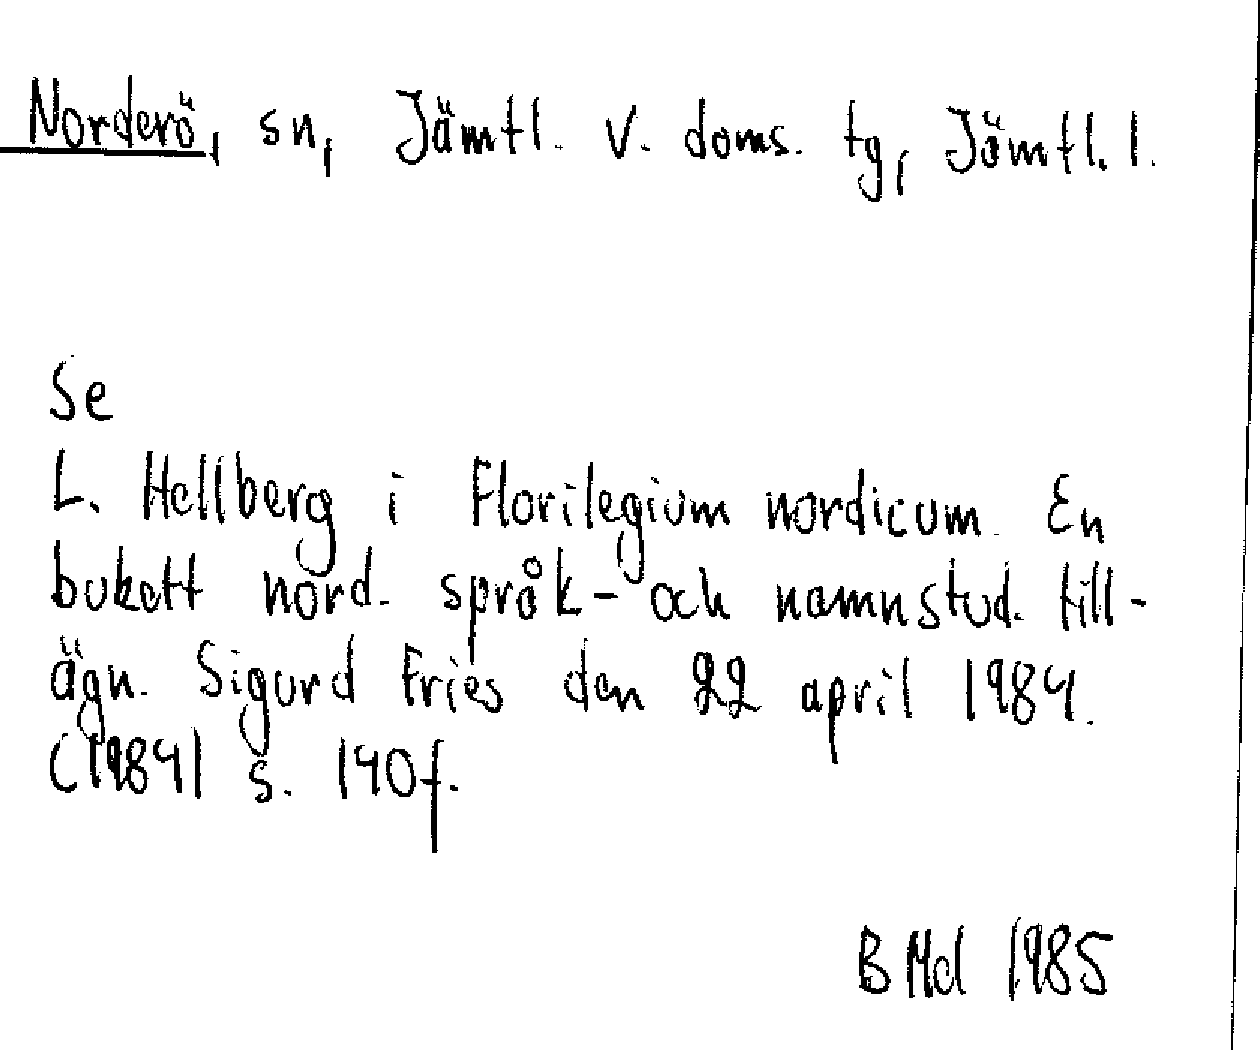 Norderö, sn, Jämtl. v. doms. tg, Jämtl. l.
Se
L. Hellberg i Florilegium nordicum. En
bukett nord. språk- och namnstud. till-
ägn. Sigurd Fries den 22 april 1984.
(1984) s. 140f.
B Md 1985